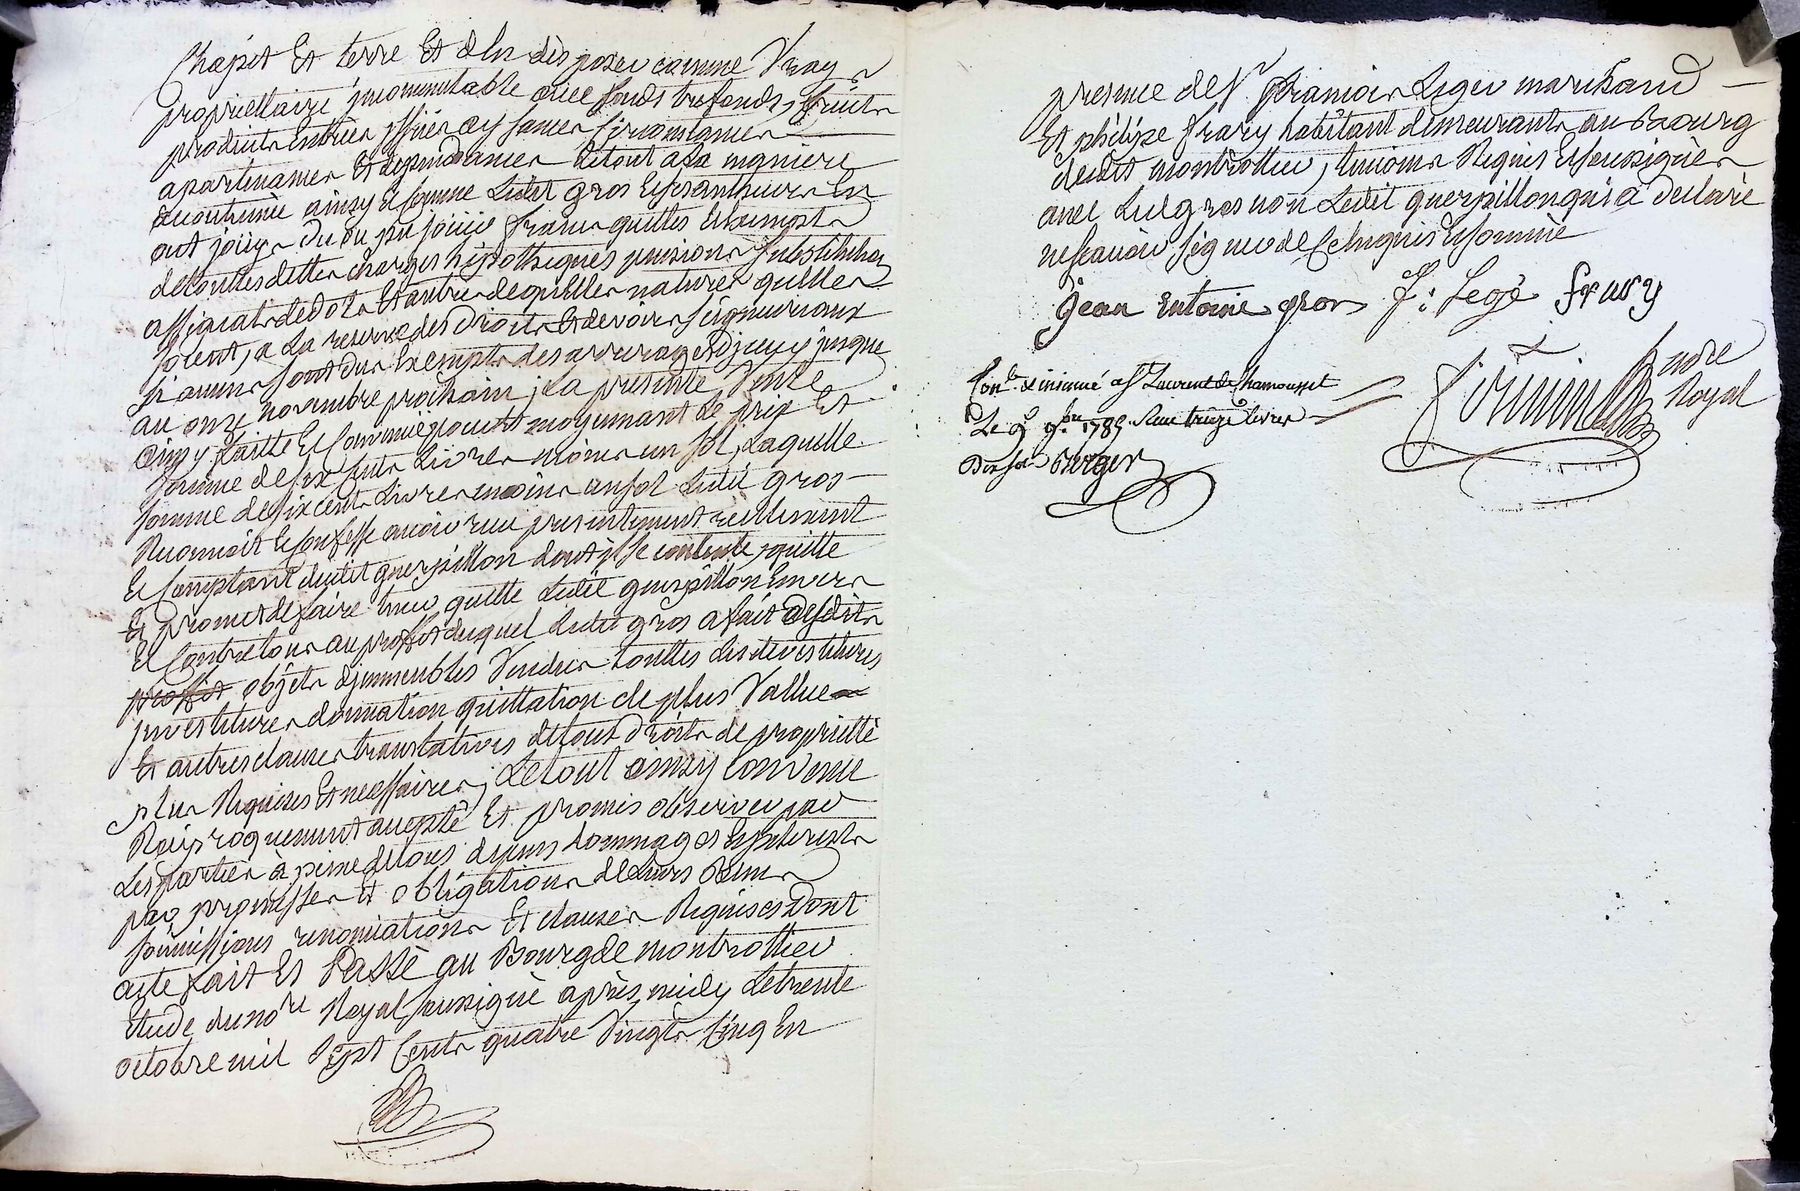 Chapit Et terre Et d'En dèsposer comme Vray
propriettaire jncommutable avec fonds trefonds, fruits
produits Entrées yssües aysances Circonstances
apartenances Et dependances Letout à la maniere
accoutumée ainsy Et Comme Ledit gros Et ses antheurs En
ont joüy, du ou pu joüir francs quittes Et Exempts
detouttes dettes charges hipotheques pensions substitution
assignats de dots Et autres dequelles natures quelles
soient, a La reserve des Droits Et devoirs seigneuriaux
si aucuns sont dus Exempts des arrerages d'jceux jusque
au onze novembre prochain; La presente Vente
ainsy faitte Et Convenüe pour Et moyenant Le prix Et
somme desix Cents Livres moins un sol, Laquelle
somme desix cents Livres moins un sol Ledit gros
Reconnoit Et Confesse avoir reçu presentement reellement
Et Comptant dudit guerpillon dont jl se contente, quitte
Et promet defaire tenir quitte Ledit guerpillon Envers
Et Contre tous au proffit duquel Ledit gros a fait desdits
proffit objets Et jmmeubles Vendus touttes les devestitures
jnvestitures donnation quittation de plus Vallue
Et autres clauses translatives detous Droits de proprietté
plus Requises Et necessaires, Letout ainsy convenu
Reciproquement accepté Et promis observer par
Les parties à peine detous depens dommages Et jnterests
par promesses Et obligations deLeurs Biens
soumissions renonciations Et clauses Requises Dont
acte fait Et Passé au Bourg de montrottier
Etude du no.re Royal soussigné après midy Letrente
octobre mil sept Cents quatre Vingts Cinq En
presence de S.r francois Leger marchand
Et philipe frary habitant demeurants au Bourg
dudit montrottier, temoins Requis Et soussignés
avec Ledit gros non Ledit guerpillon qui a declaré
nesçavoir signer de Ce Enquis Et sommé
jean entoine gros F: Legé frary
Con.lé & insinué a S.t Laurent de Chamousset
Le 9.bre 1785 Reçu treize Livres
Berger
nore
Royal